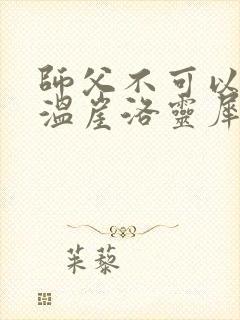 師父不可以
溫崖洛靈犀
茱藜